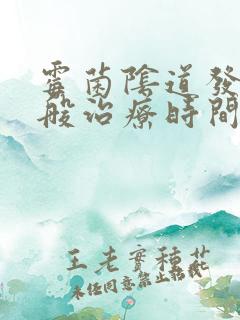 霉菌陰道發
般治療時間
王老實種花
未经同意禁止转载